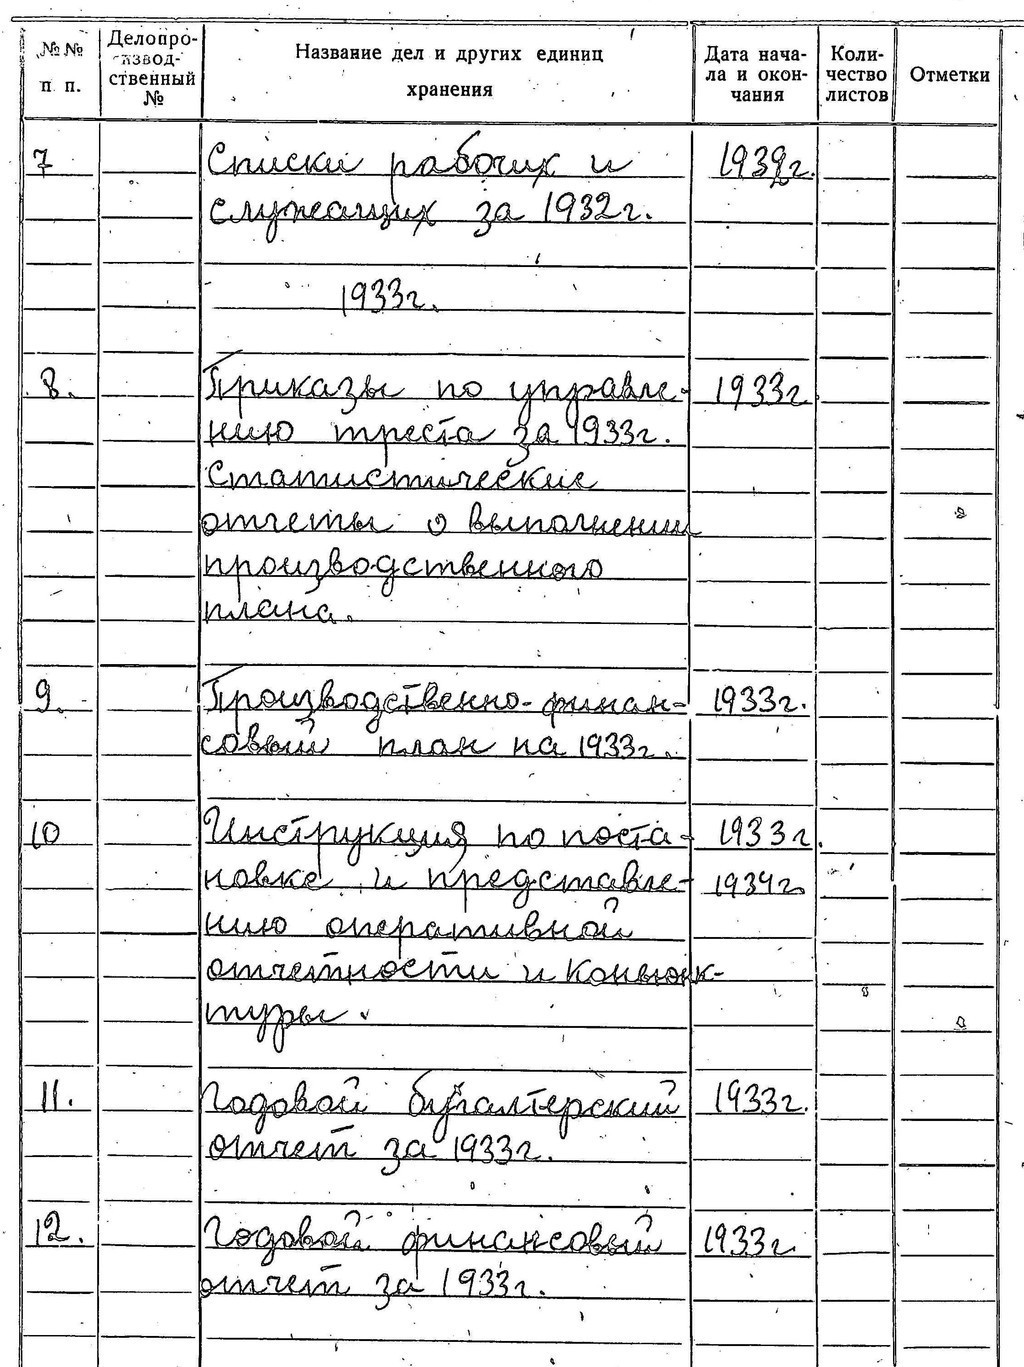 №№ п. п. Делопро-извод-ственный № Название дел и других единиц хранения Дата нача-ла и окон-чания Коли-чество листов Отметки
7 Списки рабочих и 1932г.
служащих за 1932г.
1933г.
8. Приказы по управле- 1933г
нию треста за 1933г.
Статистические
отчеты о выполнении
производственного
плана.
9. Производственно-финан- 1933г.
совый план на 1933г.
10 Инструкция по поста- 1933г.
новке и представле- 1934г.
нию оперативной
отчетности и Конъюнк-
туры.
11. Годовой бухгалтерский 1933г.
отчет за 1933г.
12. Годовой финансовый 1933г.
отчет за 1933г.